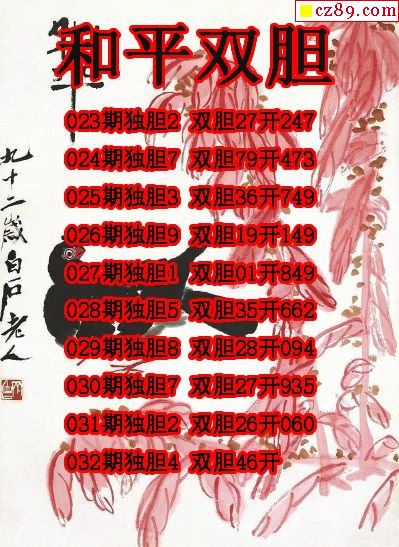 cz89.com
和平双胆
023期独胆2 双胆27开247
024期独胆7 双胆79开473
025期独胆3 双胆36开749
026期独胆9 双胆19开149
027期独胆1 双胆01开849
028期独胆5 双胆35开662
029期独胆8 双胆28开094
030期独胆7 双胆27开935
031期独胆2 双胆26开060
032期独胆4 双胆46开
九十二岁白石老人